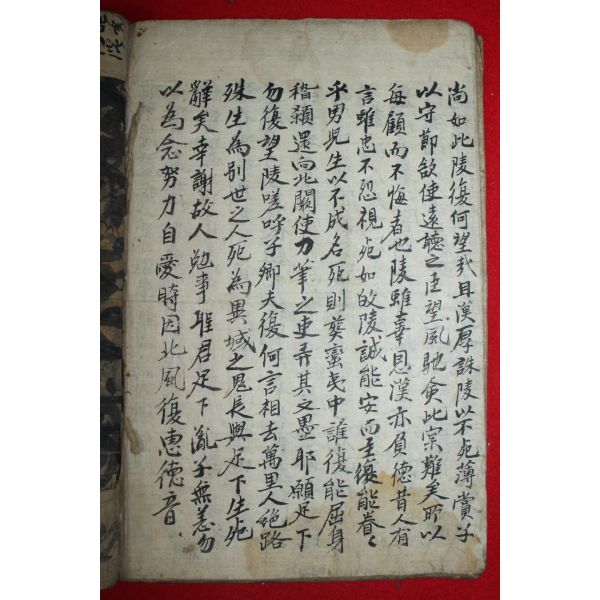 尚如此陵復何望哉且漢厚誅陵以不死薄賞子
以守節欲使遠聽之臣望風馳命此實難矣所以
每顧而不悔者也陵雖辜恩漢亦負德昔人有
言雖忠不忍視死如故陵誠能安而主復能眷〻
乎男児生以不成名死則葬蠻夷中誰復能屈身
稽顙還向北闕使刀筆之吏弄其文墨耶願足下
勿復望陵嗟呼子卿夫復何言相去萬里人絶路
殊生為別世之人死為異域之鬼長與足下生死
辭矣幸謝故人勉事聖君足下胤子無恙勿
以為念努力自愛時因北風復惠德音